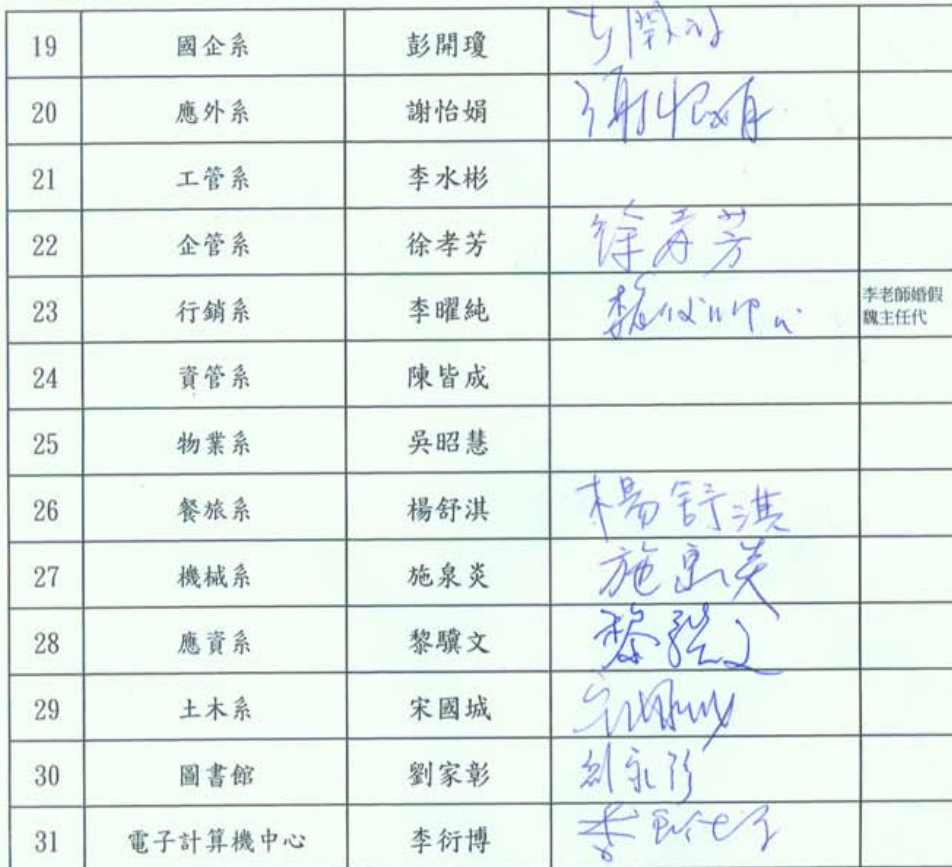 19 國企系 彭開瓊
20 應外系 謝怡娟 謝怡娟
21 工管系 李水彬
22 企管系 徐孝芳 徐孝芳
23 行銷系 李曜純 李老師婚假
魏主任代
24 資管系 陳皆成
25 物業系 吳昭慧
26 餐旅系 楊舒淇 楊舒淇
27 機械系 施泉炎 施泉炎
28 應資系 黎驥文 黎驥文
29 土木系 宋國城
30 圖書館 劉家彰
31 電子計算機中心 李衍博